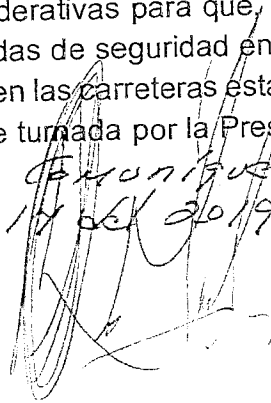 derativas para que,
das de seguridad en
en las carreteras esta
e turnada por la Pres
14 oct 2019